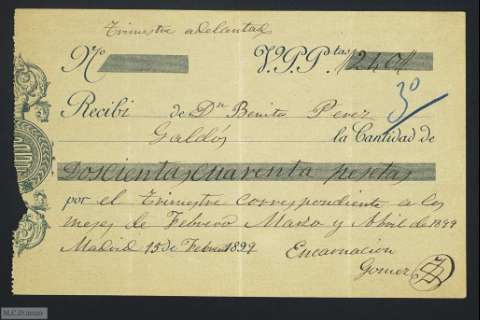 Trimestre adelantado
Nº V.P.P.tas 240
30
Recibí de Dn Benito Perez
Galdós la Cantidad de
doscientas cuarenta pesetas
por el Trimestre correspondiente a los
meses de Febrero Marzo y Abril de 1899
Madrid 15 de Febro 1899
Encarnación
Gomez